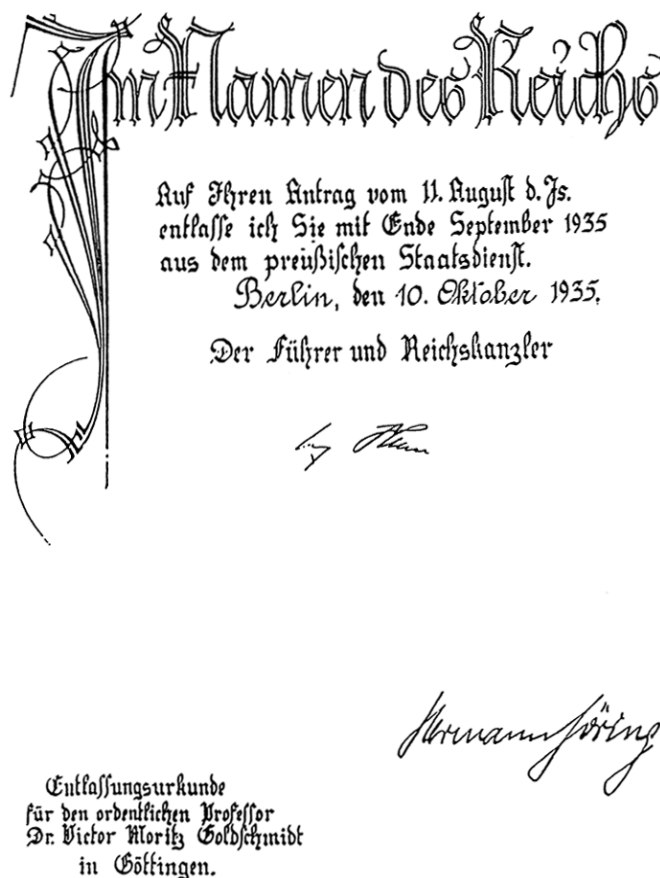 Im Namen des Reichs
Auf Ihren Antrag vom 11. August d. Js.
entlasse ich Sie mit Ende September 1935
aus dem preußischen Staatsdienst.
Berlin, den 10. Oktober 1935.
Der Führer und Reichskanzler
Hermann Göring
Entlassungsurkunde
für den ordentlichen Professor
Dr. Victor Moritz Goldschmidt
in Göttingen.